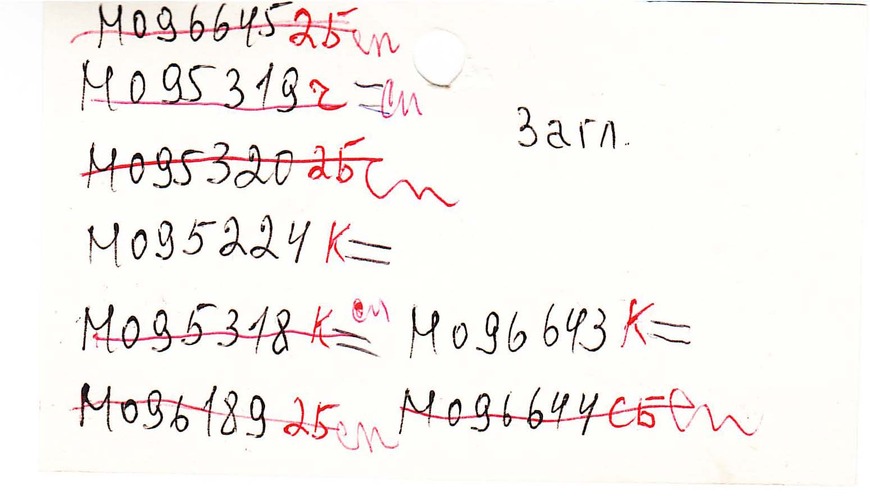 М096645 25 сп
М095319 г = сп
Загл.
М095320 25 сп
М095224 К=
М095318 К= сп М096643 К=
М096189 25 сп М096644 СБ сп